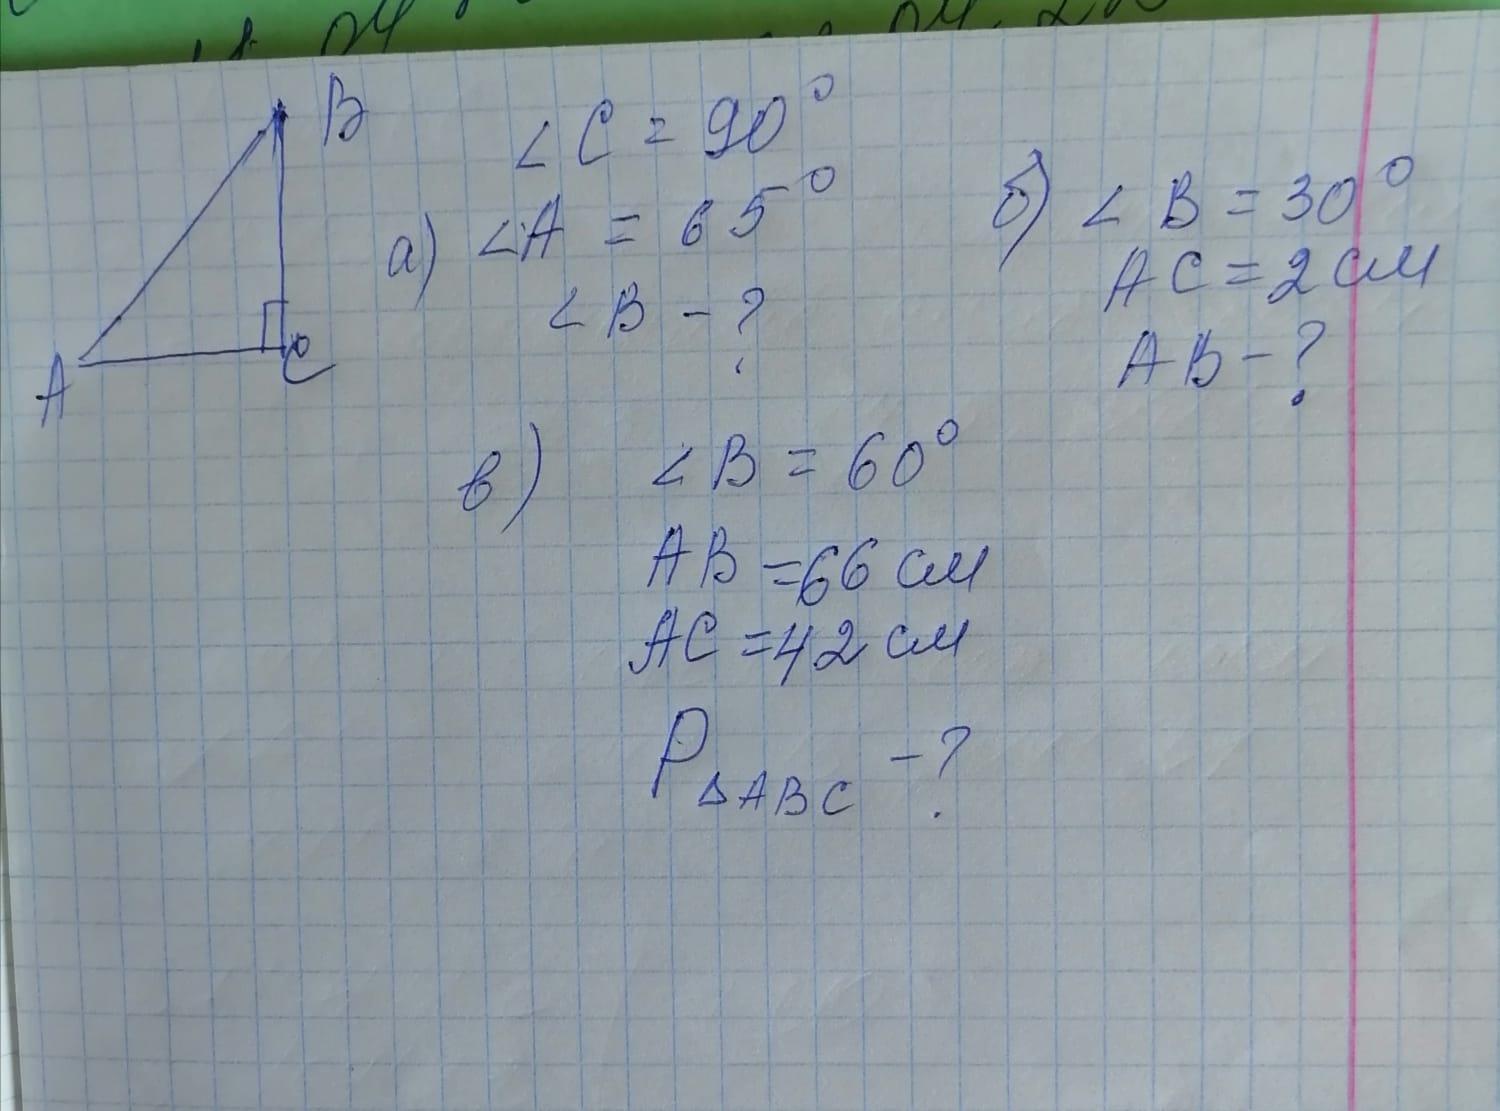 B
A
C
∠C = 90°
а) ∠A = 65°
∠B - ?
б) ∠B = 30°
AC = 2 см
AB - ?
в) ∠B = 60°
AB = 66 см
AC = 42 см
P△ABC - ?